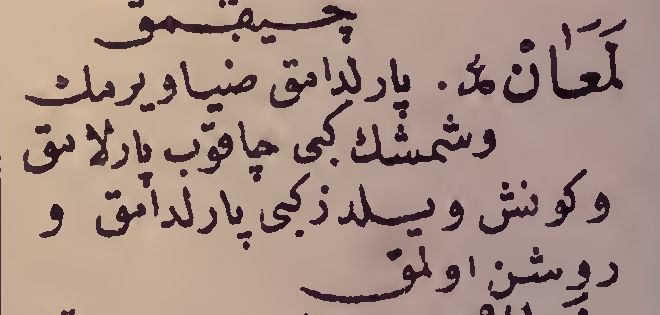 چیقمق
لَمَعَانْ پارلدامق ضیا ویرمك
وشمشك كبی چاقوب پارلامق
وكونش ویلدز كبی پارلدامق و
روشن اولمق